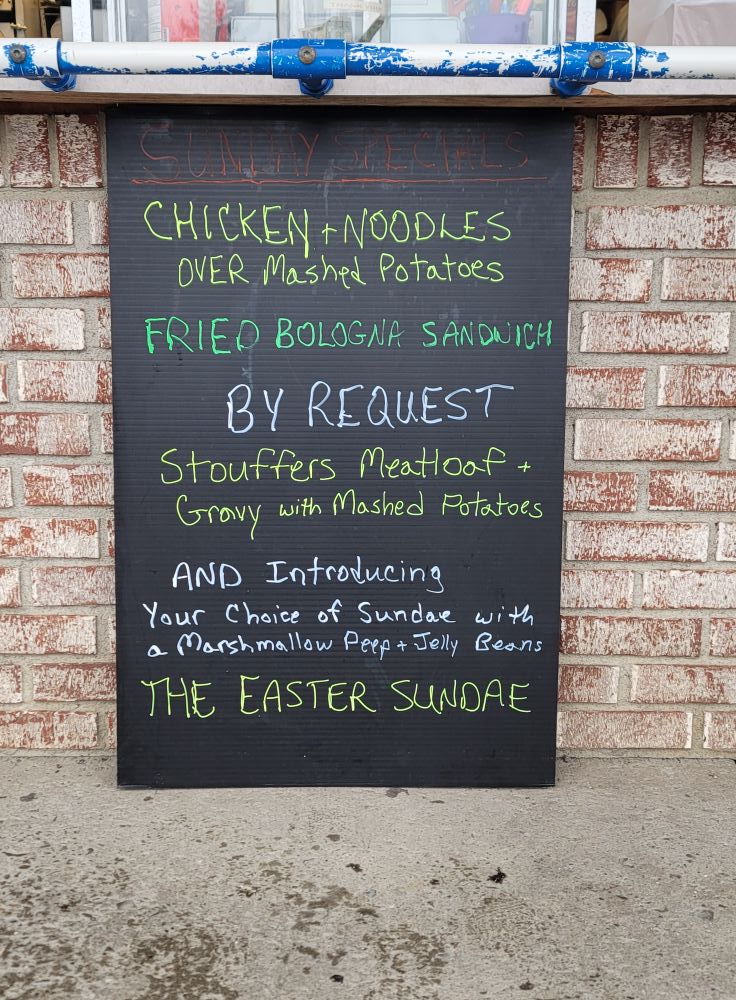 SUNDAY SPECIALS
CHICKEN + NOODLES
OVER Mashed Potatoes
FRIED BOLOGNA SANDWICH
BY REQUEST
Stouffers Meatloaf +
Gravy with Mashed Potatoes
AND Introducing
Your Choice of Sundae with
a Marshmallow Peep + Jelly Beans
THE EASTER SUNDAE